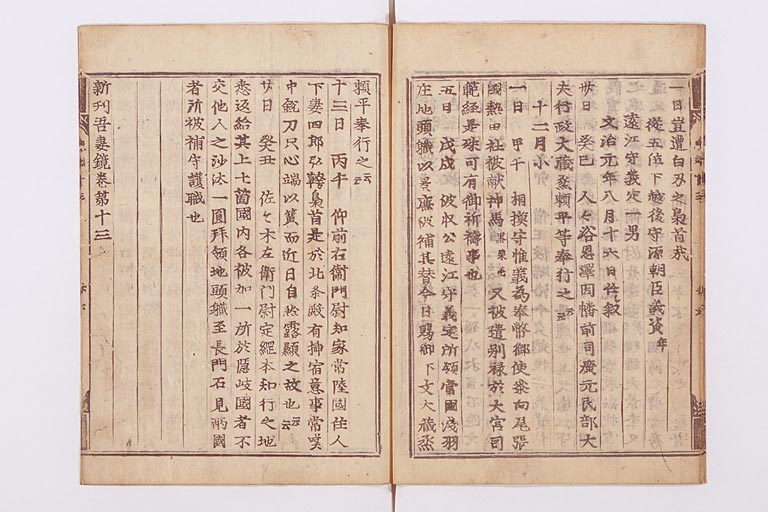 一旦豈遭白刃之梟首哉
從五位下越後守源朝臣義資年
遠江守義定一男
文治元年八月十六日任叙
卅日 癸巳 人々浴恩澤因幡前司廣元民部大
夫行政大蔵丞頼平等奉行之云云
十二月小
一日 甲午 相摸守惟義為奉幣御使参向尾張
國熱田社被献神馬 又被遣別禄於大宮司
範経是殊可有御祈禱事也
五日 戊戌 被收公遠江守義定所領當國淺羽
庄地頭軄以景廉被補其替今日賜御下文大蔵丞
頼平奉行之云云
十三日 丙午 仰前右衛門尉知家常陸國住人
下妻四郎弘幹梟首是於北条殿有挿宿意事常咲
中鋭刀只心端以簧而近日自然露顕之故也云云
廿日 癸丑 佐々木左衛門尉定綱本知行之地
悉返給其上七箇國内各被加一所於隠岐國者不
交他人之沙汰一圓拜領地頭軄至長門石見兩國
者所被補守護職也
新刊吾妻鏡卷第十三